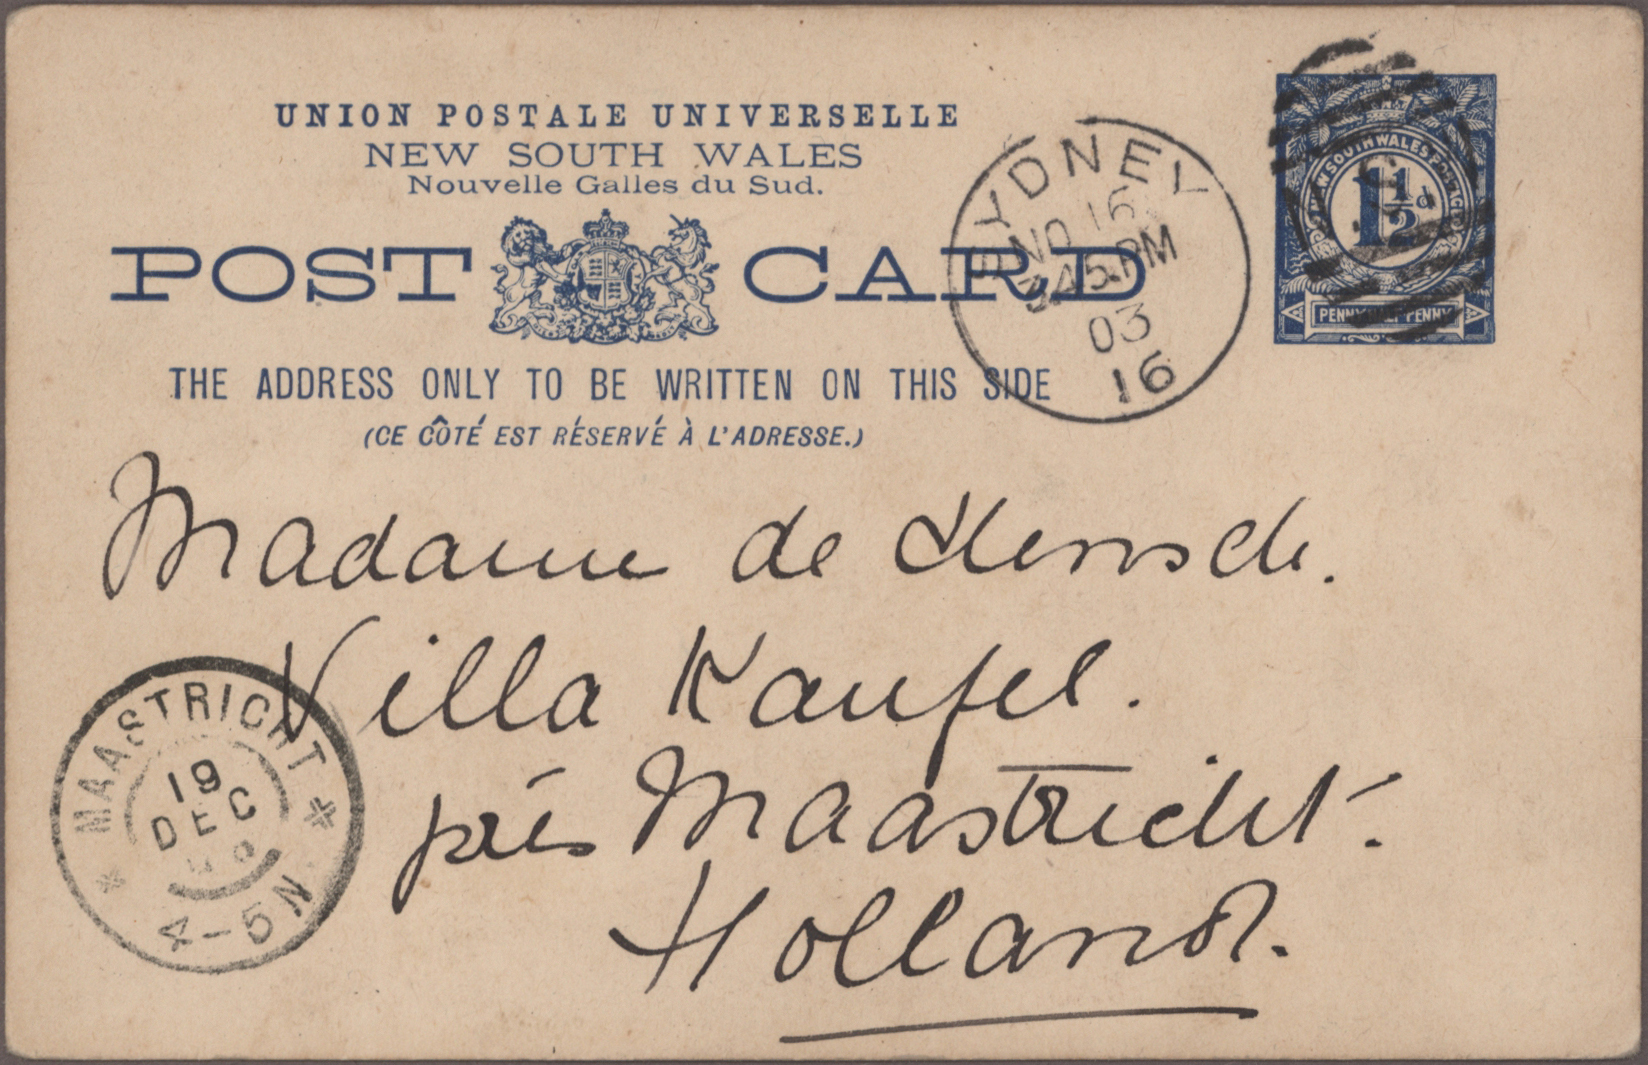 UNION POSTALE UNIVERSELLE
NEW SOUTH WALES
Nouvelle Galles du Sud.
POST CARD
THE ADDRESS ONLY TO BE WRITTEN ON THIS SIDE
(CE CÔTÉ EST RÉSERVÉ À L'ADRESSE.)
SYDNEY
NO 16
3 45 PM
03
16
1½d
PENNY HALF PENNY
Madame de
Villa Kaufel.
près Maastricht.
Holland.
MAASTRICHT
19
DEC
4-5N